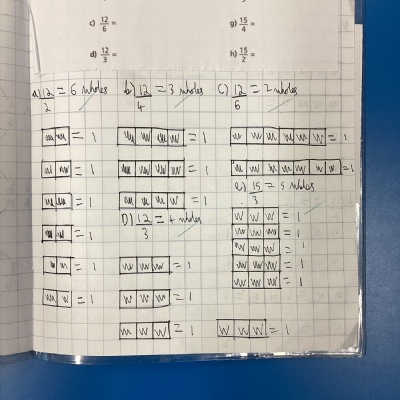 c) 12/6 =
g) 15/4 =
d) 12/3 =
h) 15/2 =
a) 12/2 = 6 wholes
b) 12/4 = 3 wholes
c) 12/6 = 2 wholes
= 1
= 1
= 1
= 1
= 1
= 1
= 1
= 1
= 1
D) 12/3 = 4 wholes
= 1
= 1
= 1
= 1
= 1
e) 15/3 = 5 wholes
= 1
= 1
= 1
= 1
= 1
= 1